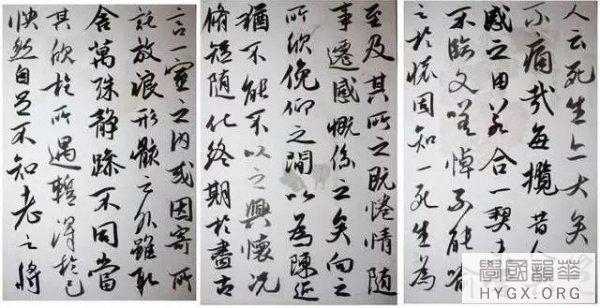 言一室之內或因寄所
託放浪形骸之外雖取
舍萬殊靜躁不同當
其欣於所遇暫得於己
快然自足不知老之將
至及其所之既惓情隨
事遷感慨係之矣向之
所欣俛仰之間以為陳迹
猶不能不以之興懷況
脩短隨化終期於盡古
人云死生亦大矣
不痛哉每攬昔人
感之由若合一契
不臨文嗟悼不能喻
之於懷固知一死生為
學國韻華
HYGX.ORG